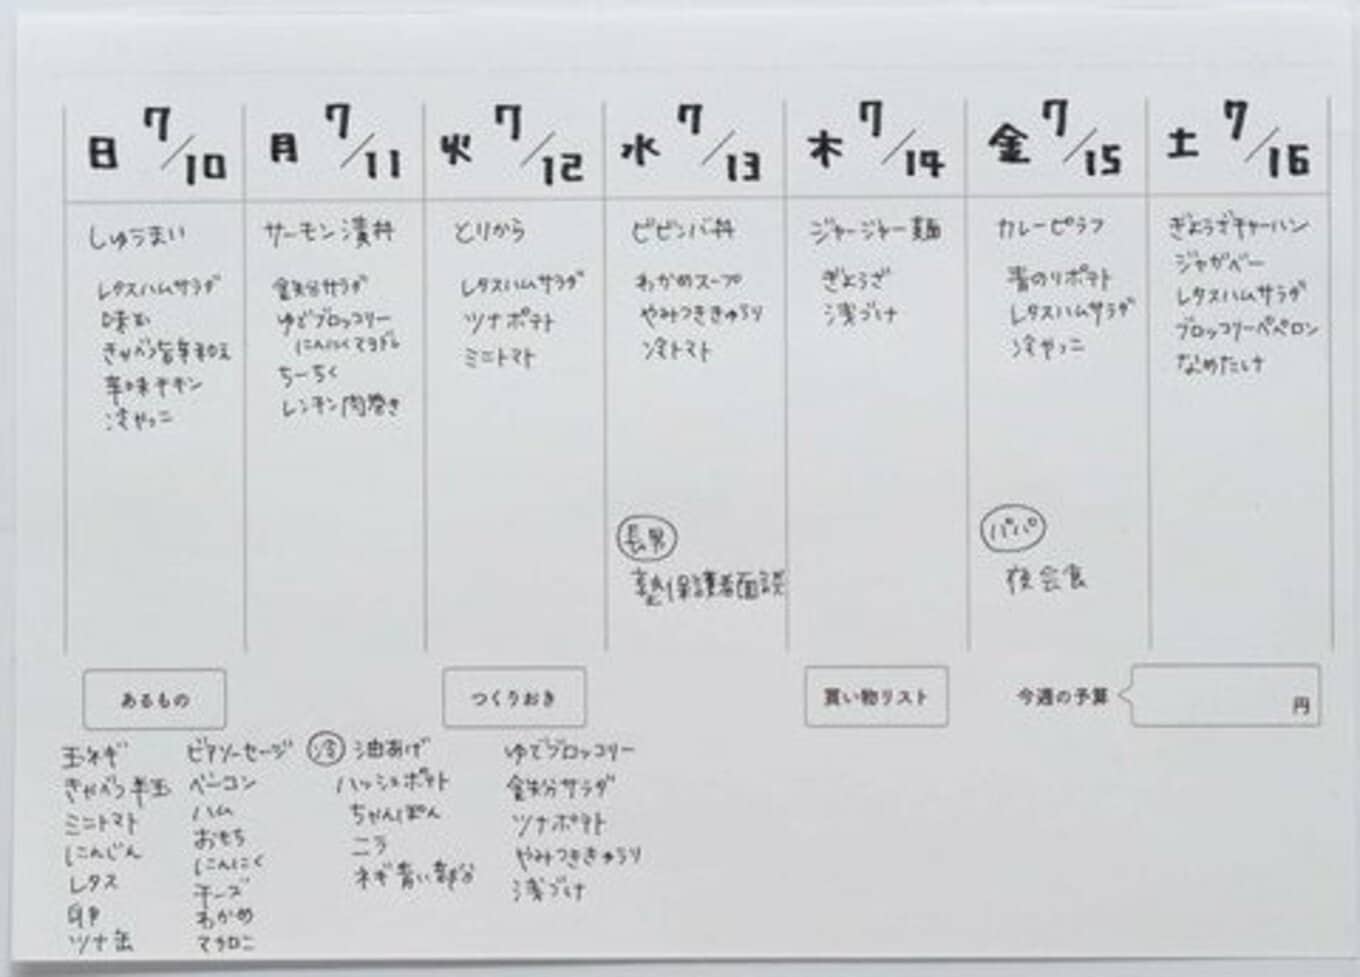 日 7/10
しゅうまい
レタスハムサラダ
味玉
きゃべつ旨辛和え
辛味チキン
冷やっこ
月 7/11
サーモン漬丼
鉄分サラダ
ゆでブロッコリー
にんにくマヨダレ
ちーちく
レンチン肉巻き
火 7/12
とりから
レタスハムサラダ
ツナポテト
ミニトマト
水 7/13
ビビンバ丼
わかめスープ
やみつききゅうり
冷トマト
長男
塾保護者面談
木 7/14
ジャージャー麺
ぎょうざ
浅づけ
金 7/15
カレーピラフ
青のりポテト
レタスハムサラダ
冷やっこ
パパ
夜会食
土 7/16
ぎょうざチャーハン
ジャガベー
レタスハムサラダ
ブロッコリーペペロン
なめたけ
あるもの
玉ネギ
きゃべつ半玉
ミニトマト
にんじん
レタス
卵
ツナ缶
ビアソーセージ
ベーコン
ハム
おもち
にんにく
チーズ
わかめ
マカロニ
冷 油あげ
ハッシュポテト
ちゃんぽん
ニラ
ネギ青い部分
つくりおき
ゆでブロッコリー
鉄分サラダ
ツナポテト
やみつききゅうり
浅づけ
買い物リスト
今週の予算
円